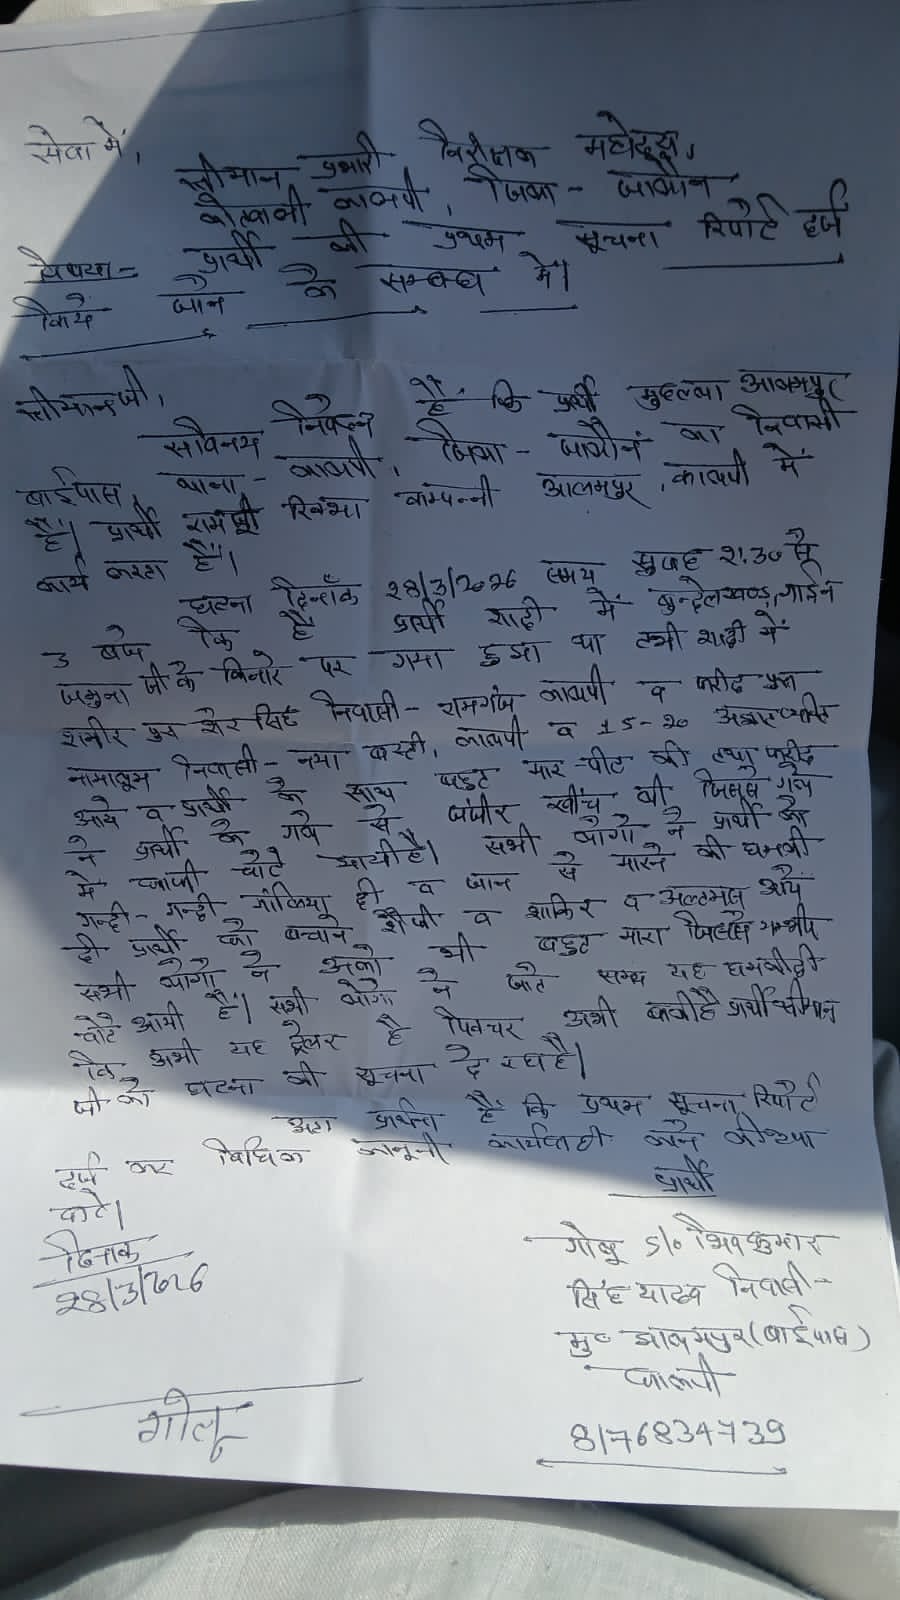 सेवा में,
श्रीमान प्रभारी निरीक्षक महोदय,
कोतवाली कालपी, जिला - जालौन
विषय - प्रार्थी की प्रथम सूचना रिपोर्ट दर्ज
किये जाने के सम्बन्ध में।
श्रीमानजी,
सविनय निवेदन है कि प्रार्थी मुहल्ला आलमपुर
बाईपास, थाना - कालपी, जिला - जालौन का निवासी
है। प्रार्थी रिक्शा कम्पनी आलमपुर, कालपी में
कार्य करता है।
घटना दिनाँक 28/3/2026 समय सुबह 2:30 से
3 बजे कि है प्रार्थी शादी में बुन्देलखण्ड गार्डन
जमुना जी के किनारे पर गया हुआ था तभी शादी में
पुत्र शेर सिंह निवासी - रामगंज कालपी व फरीद पुत्र
नामालूम निवासी - नया बस्ती, कालपी व 15-20 अज्ञात व्यक्ति
आये व प्रार्थी के साथ बहुत मार-पीट की तथा फरीद
ने प्रार्थी के गले से जंजीर खींच ली जिससे गले
में काफी चोटे आयी है। सभी लोगो ने प्रार्थी को
गन्दी-गन्दी गालिया दी व जान से मारने की धमकी
दी प्रार्थी को बचाने शैजी व शाकिर व अल्तमस आये
सभी लोगो ने उनको भी बहुत मारा जिससे गम्भीर
चोटे आयी है। सभी लोगो ने जाते समय यह धमकी दी
कि अभी यह ट्रेलर है पिक्चर अभी बाकी है प्रार्थी श्रीमान
जी को घटना की सूचना दे रहा है।
अतः प्रार्थना है कि प्रथम सूचना रिपोर्ट
दर्ज कर विधिक कानूनी कार्यवाही करने की कृपा
करे।
प्रार्थी
दिनाक
28/3/2026
गोलू S/o शिवकुमार
सिंह यादव निवासी -
मु० आलमपुर (बाईपास)
कालपी
8176834739
गोलू